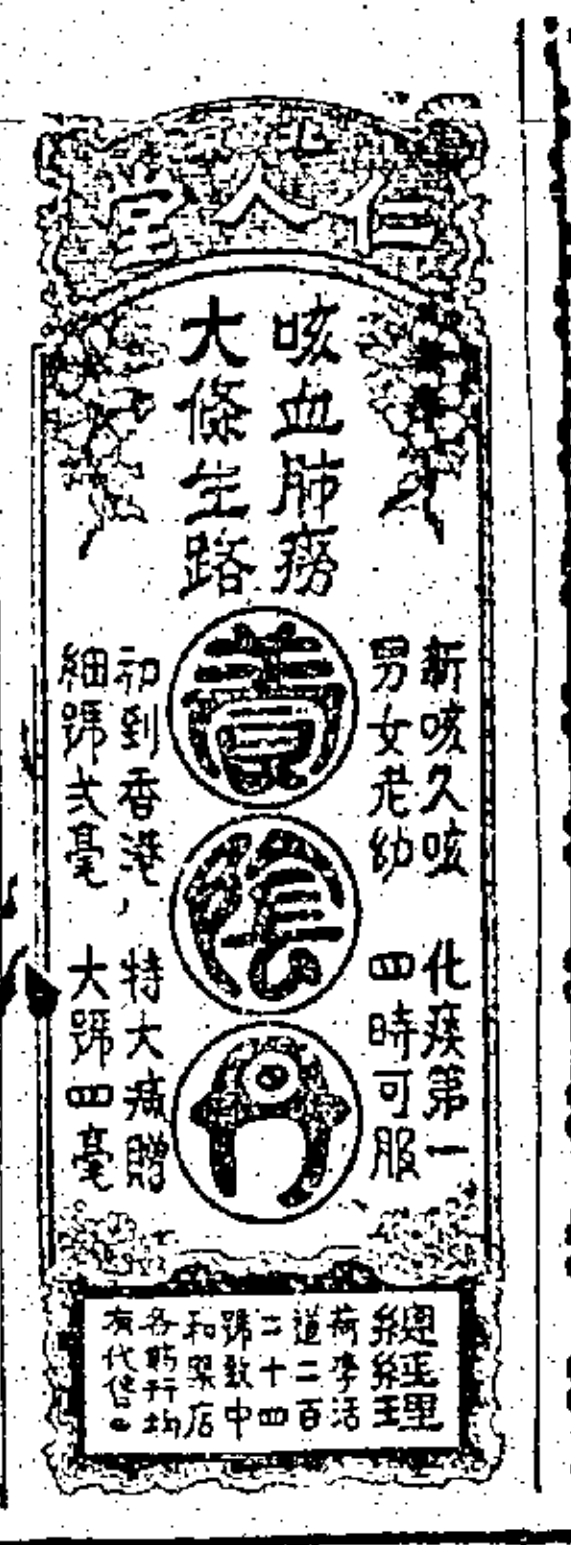 仁人堂
咳血肺癆
大條生路
養陰丹
新咳久咳 化痰第一
男女老幼 四時可服
初到香港，特大痛贈
細號弍毫 大號四毫
總經理
荷李活
道二百
二十四
號致中
和藥店
各葯行均
有代售